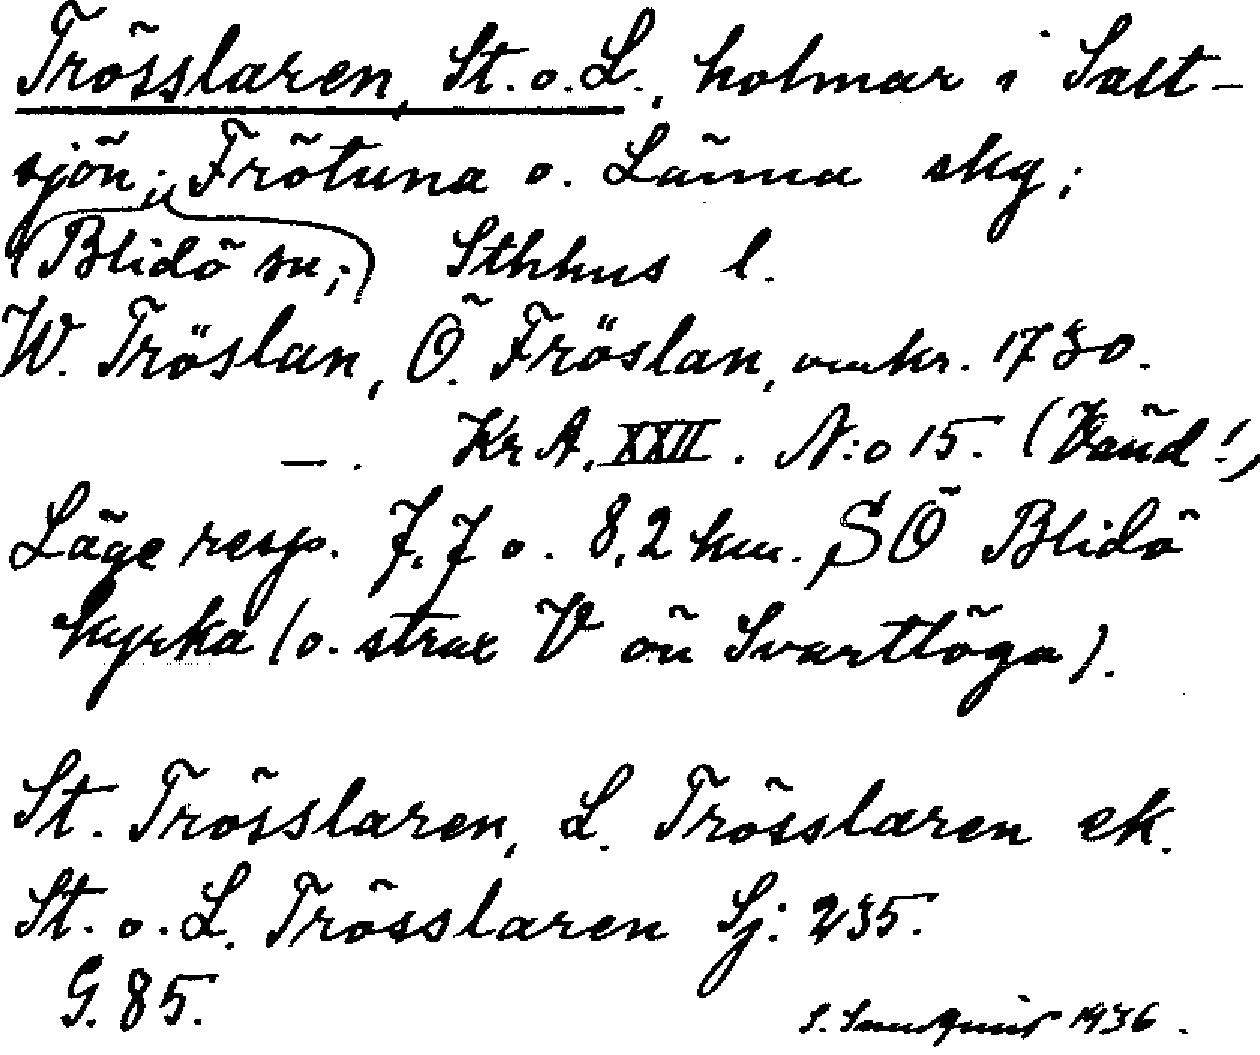 Trösslaren, St. o. L., holmar i Salt-
sjön; Frötuna o. Länna skg;
(Blidö sn;) Sthlms l.
W. Tröslan, Ö. Fröslan, omkr. 1730.
— . Kr A. XXII. N:o 15. (Vänd!)
Läge resp. 7,7 o. 8,2 km. SÖ Blidö
kyrka (o. strax V ön Svartlöga).
St. Trösslaren, L. Trösslaren ek.
St. o. L. Trösslaren Sj: 235.
G. 85.
S. 1936.